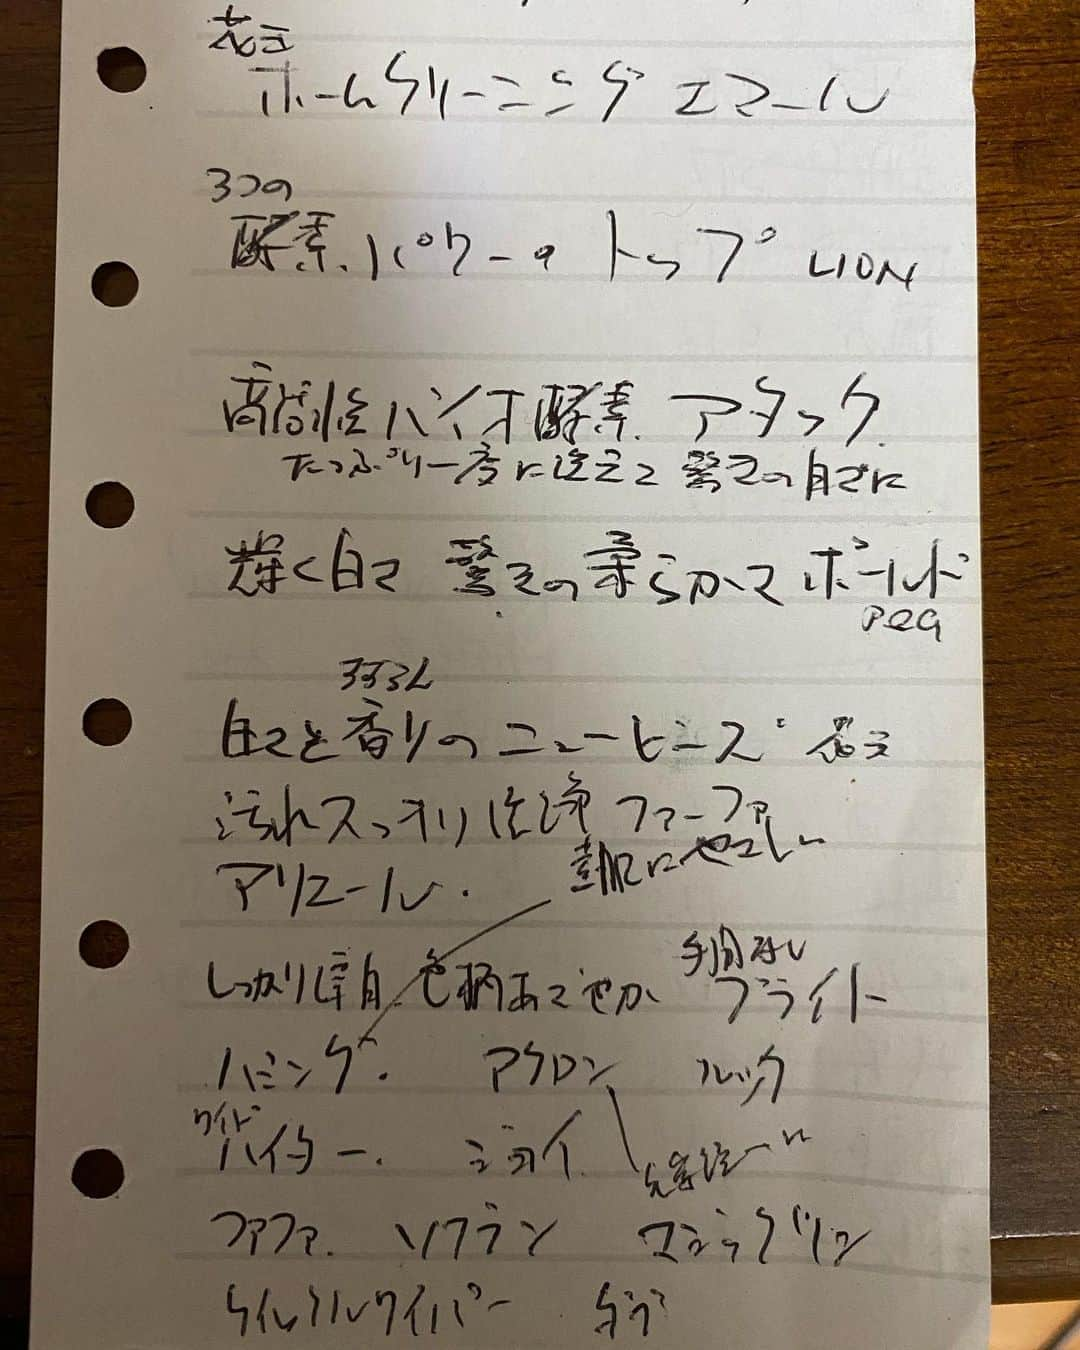 花王
ホームクリーニング エマール
3つの
酵素パワーの トップ LION
高活性バイオ酵素 アタック
たっぷり一度に洗えて 驚きの白さに
輝く白さ 驚きの柔らかさ ボールド
P&G
すずらん
白さと香りのニュービーズ 花王
汚れスッキリ洗浄 ファーファ
アリエール.
素肌にやさしい
手間なし
しっかり漂白 色柄あざやか ブライト
ハミング. アクロン ルック
ワイド
ハイター.
ファファ. ソフラン マジックリン
クイックルワイパー ダブ